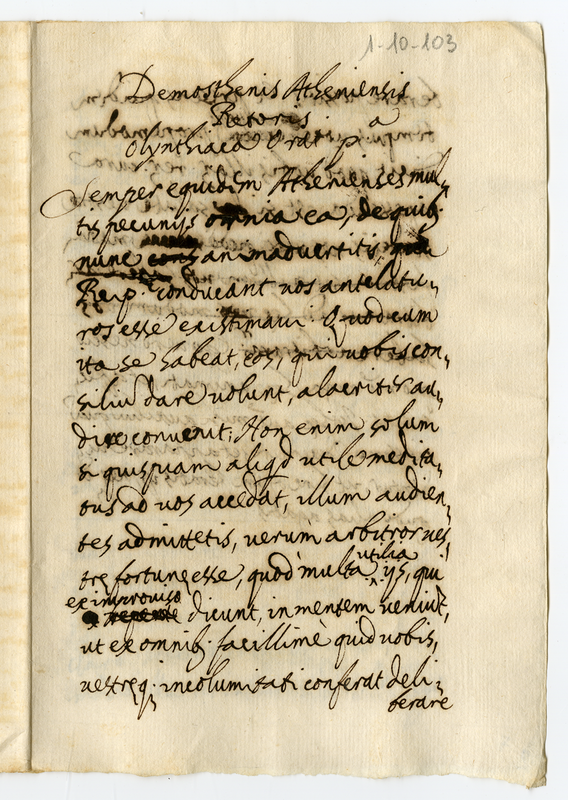 1-10-103
Demosthenis Atheniensis
Retoris
Olynthiaca Orat. p.ª
Semper equidem Athenienses mul,
tis pecunijs omnia ea, de quib.
nunc animadvertitis,
Reip. conducant vos antelatu,
ros esse existimavi. Quod cum
ita se habeat, eos, qui vobis con,
siliũ dare volunt, alacriter au,
dire convenit; Non enim solum
si quispiam aliqd utile medita,
tus ad vos accedat, illum audien,
tes admittetis, verum arbitror ves,
utilia
trę fortunę esse, quod multa ijs, qui
ex improviso
repente dicunt, in mentem veniũt,
ut ex omnib. facillimè quid vobis,
vestręq. incolumitati conferat deli,
berare